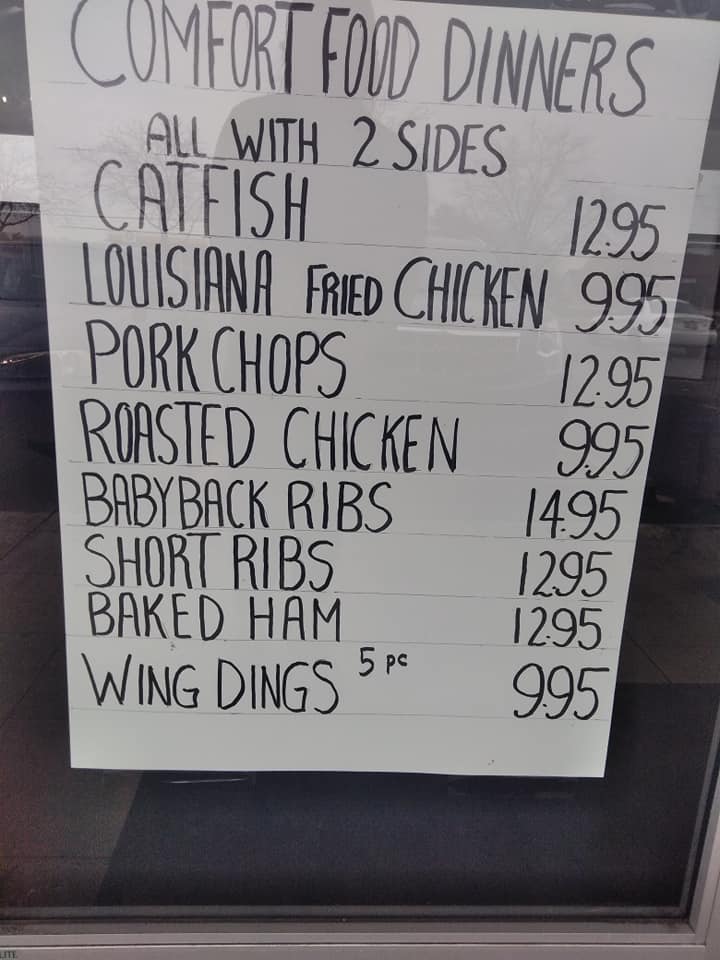 COMFORT FOOD DINNERS
ALL WITH 2 SIDES
CATFISH 12.95
LOUISIANA FRIED CHICKEN 9.95
PORK CHOPS 12.95
ROASTED CHICKEN 9.95
BABYBACK RIBS 14.95
SHORT RIBS 12.95
BAKED HAM 12.95
WING DINGS 5 pc 9.95